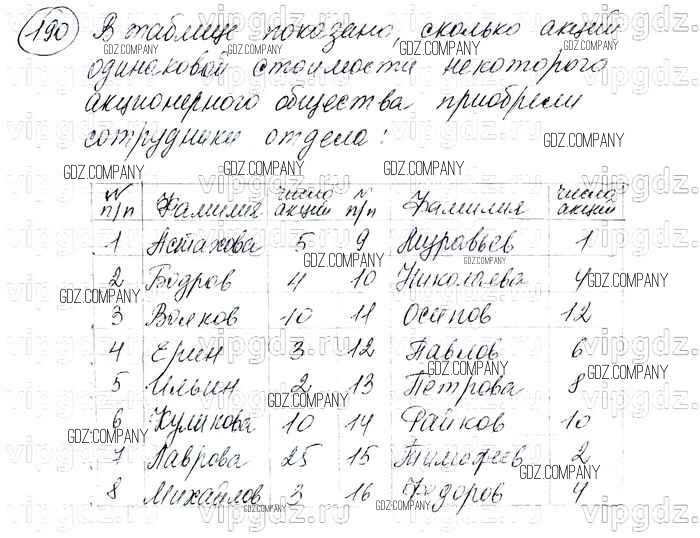 190 В таблице показано, сколько акций
одинаковой стоимости некоторого
акционерного общества приобрели
сотрудники отдела:
N п/п Фамилия число акций N п/п Фамилия число акций
1 Астахова 5 9 Муравьев 1
2 Бодров 4 10 Николаева 4
3 Волков 10 11 Осипов 12
4 Ерин 3 12 Павлов 6
5 Ильин 2 13 Петрова 8
6 Куликова 10 14 Файков 10
7 Лаврова 25 15 Тимофеев 2
8 Михайлов 3 16 Фёдоров 4
GDZ.COMPANY
vipgdz.ru